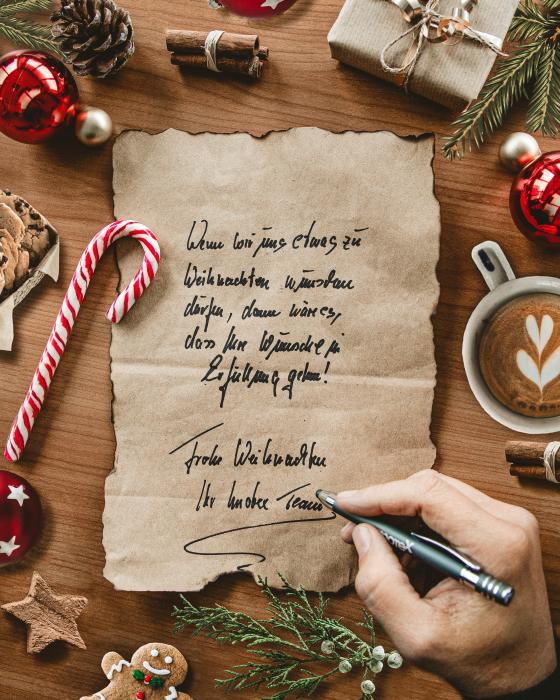 Wenn wir uns etwas zu
Weihnachten wünschen
dürfen, dann wäre es,
dass Ihre Wünsche in
Erfüllung gehen!
Frohe Weihnachten
Ihr Team